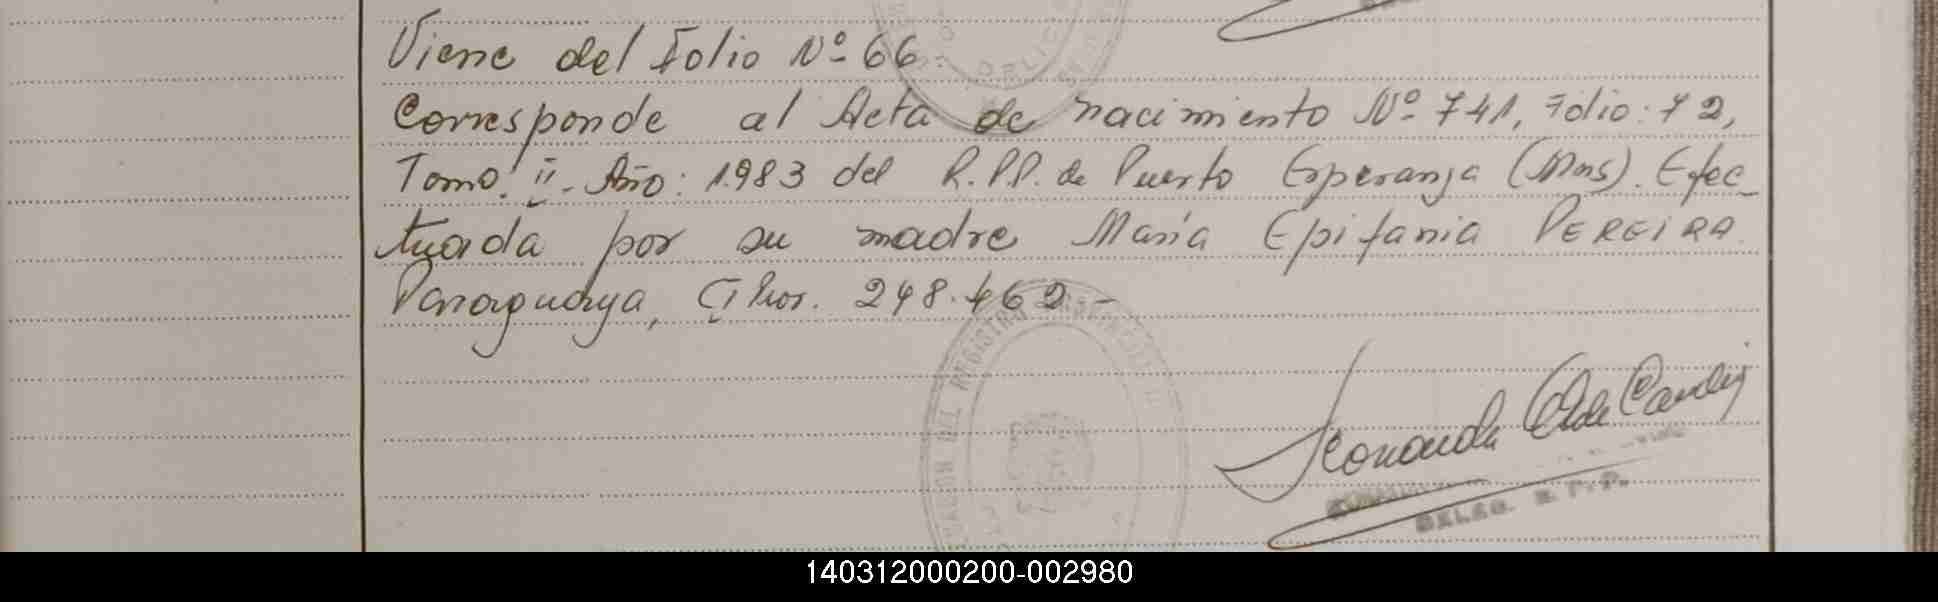 Viene del Folio Nº 66.
Corresponde al Acta de nacimiento Nº 741, Folio: 72,
Tomo: II. Año: 1983 del R.P.P. de Puerto Esperanza (Mns). Efec_
tuada por su madre María Epifania PEREIRA
Paraguaya, 248.462-
DELEG. R.P.P.
140312000200-002980